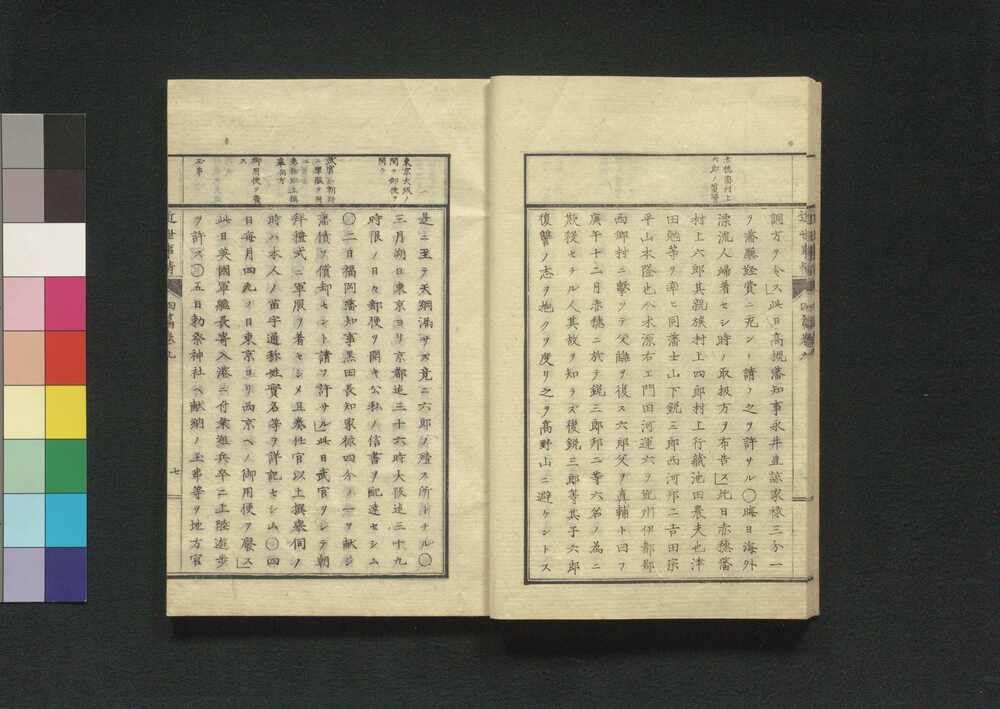 赤穂藩村上
六郎ノ復讐
調方ヲ令ス此日高槻藩知事永井直諒家禄三分一
ヲ藩廳経費ニ充ント請フ之ヲ許サル〇晦日海外
漂流人帰着セシ時ノ取扱方ヲ布告ス此日赤穂藩
村上六郎其親族村上四郎村上行蔵池田農夫也津
田勉等ヲ率ヒ同藩士山下鋭三郎西河邦二吉田宗
平山本隆也八木源右エ門田河運六ヲ紀州伊都郡
西郷村ニ撃ツテ父讐ヲ復ス六郎父ヲ真輔ト曰フ
庚午十二月赤穂ニ於テ鋭三郎邦二等六名ノ為ニ
欺殺セラル人其故ヲ知ラズ後鋭三郎等其子六郎
復讐ノ志ヲ抱クヲ度リ之ヲ高野山ニ避ケントス
近世事情
四篇巻九
東京大坂ノ
間ヲ郵便ヲ
開ク
武官ヲ朝拝
ニ軍服ヲ用
御用便ヲ廃
ス
玉串
是ニ至テ天網漏サズ竟ニ六郎ノ殪ス所トナル〇
三月朔日東京ヨリ京都迄三十六時大阪迄三十九
時限ノ日々郵便ヲ開キ公私ノ信書ヲ配達セシム
〇二日福岡藩知事黒田長知家禄四分ノ一ヲ献シ
藩債ヲ償却セント請フ許サル此日武官ヲシテ朝
拝禮式ニ軍服ヲ着セシメ且奏任官以上撰挙伺ノ
時ハ本人ノ苗字通称姓實名等ヲ詳記セシム〇四
日毎月四九ノ日東京ヨリ西京ヘノ御用便ヲ廃ス
此日英國軍艦長崎入港ニ付業進兵卒ニ上陸遊歩
ヲ許ス〇五日勅祭神社ヘ献納ノ玉串等ヲ地方官
近世事情
四篇巻九
七